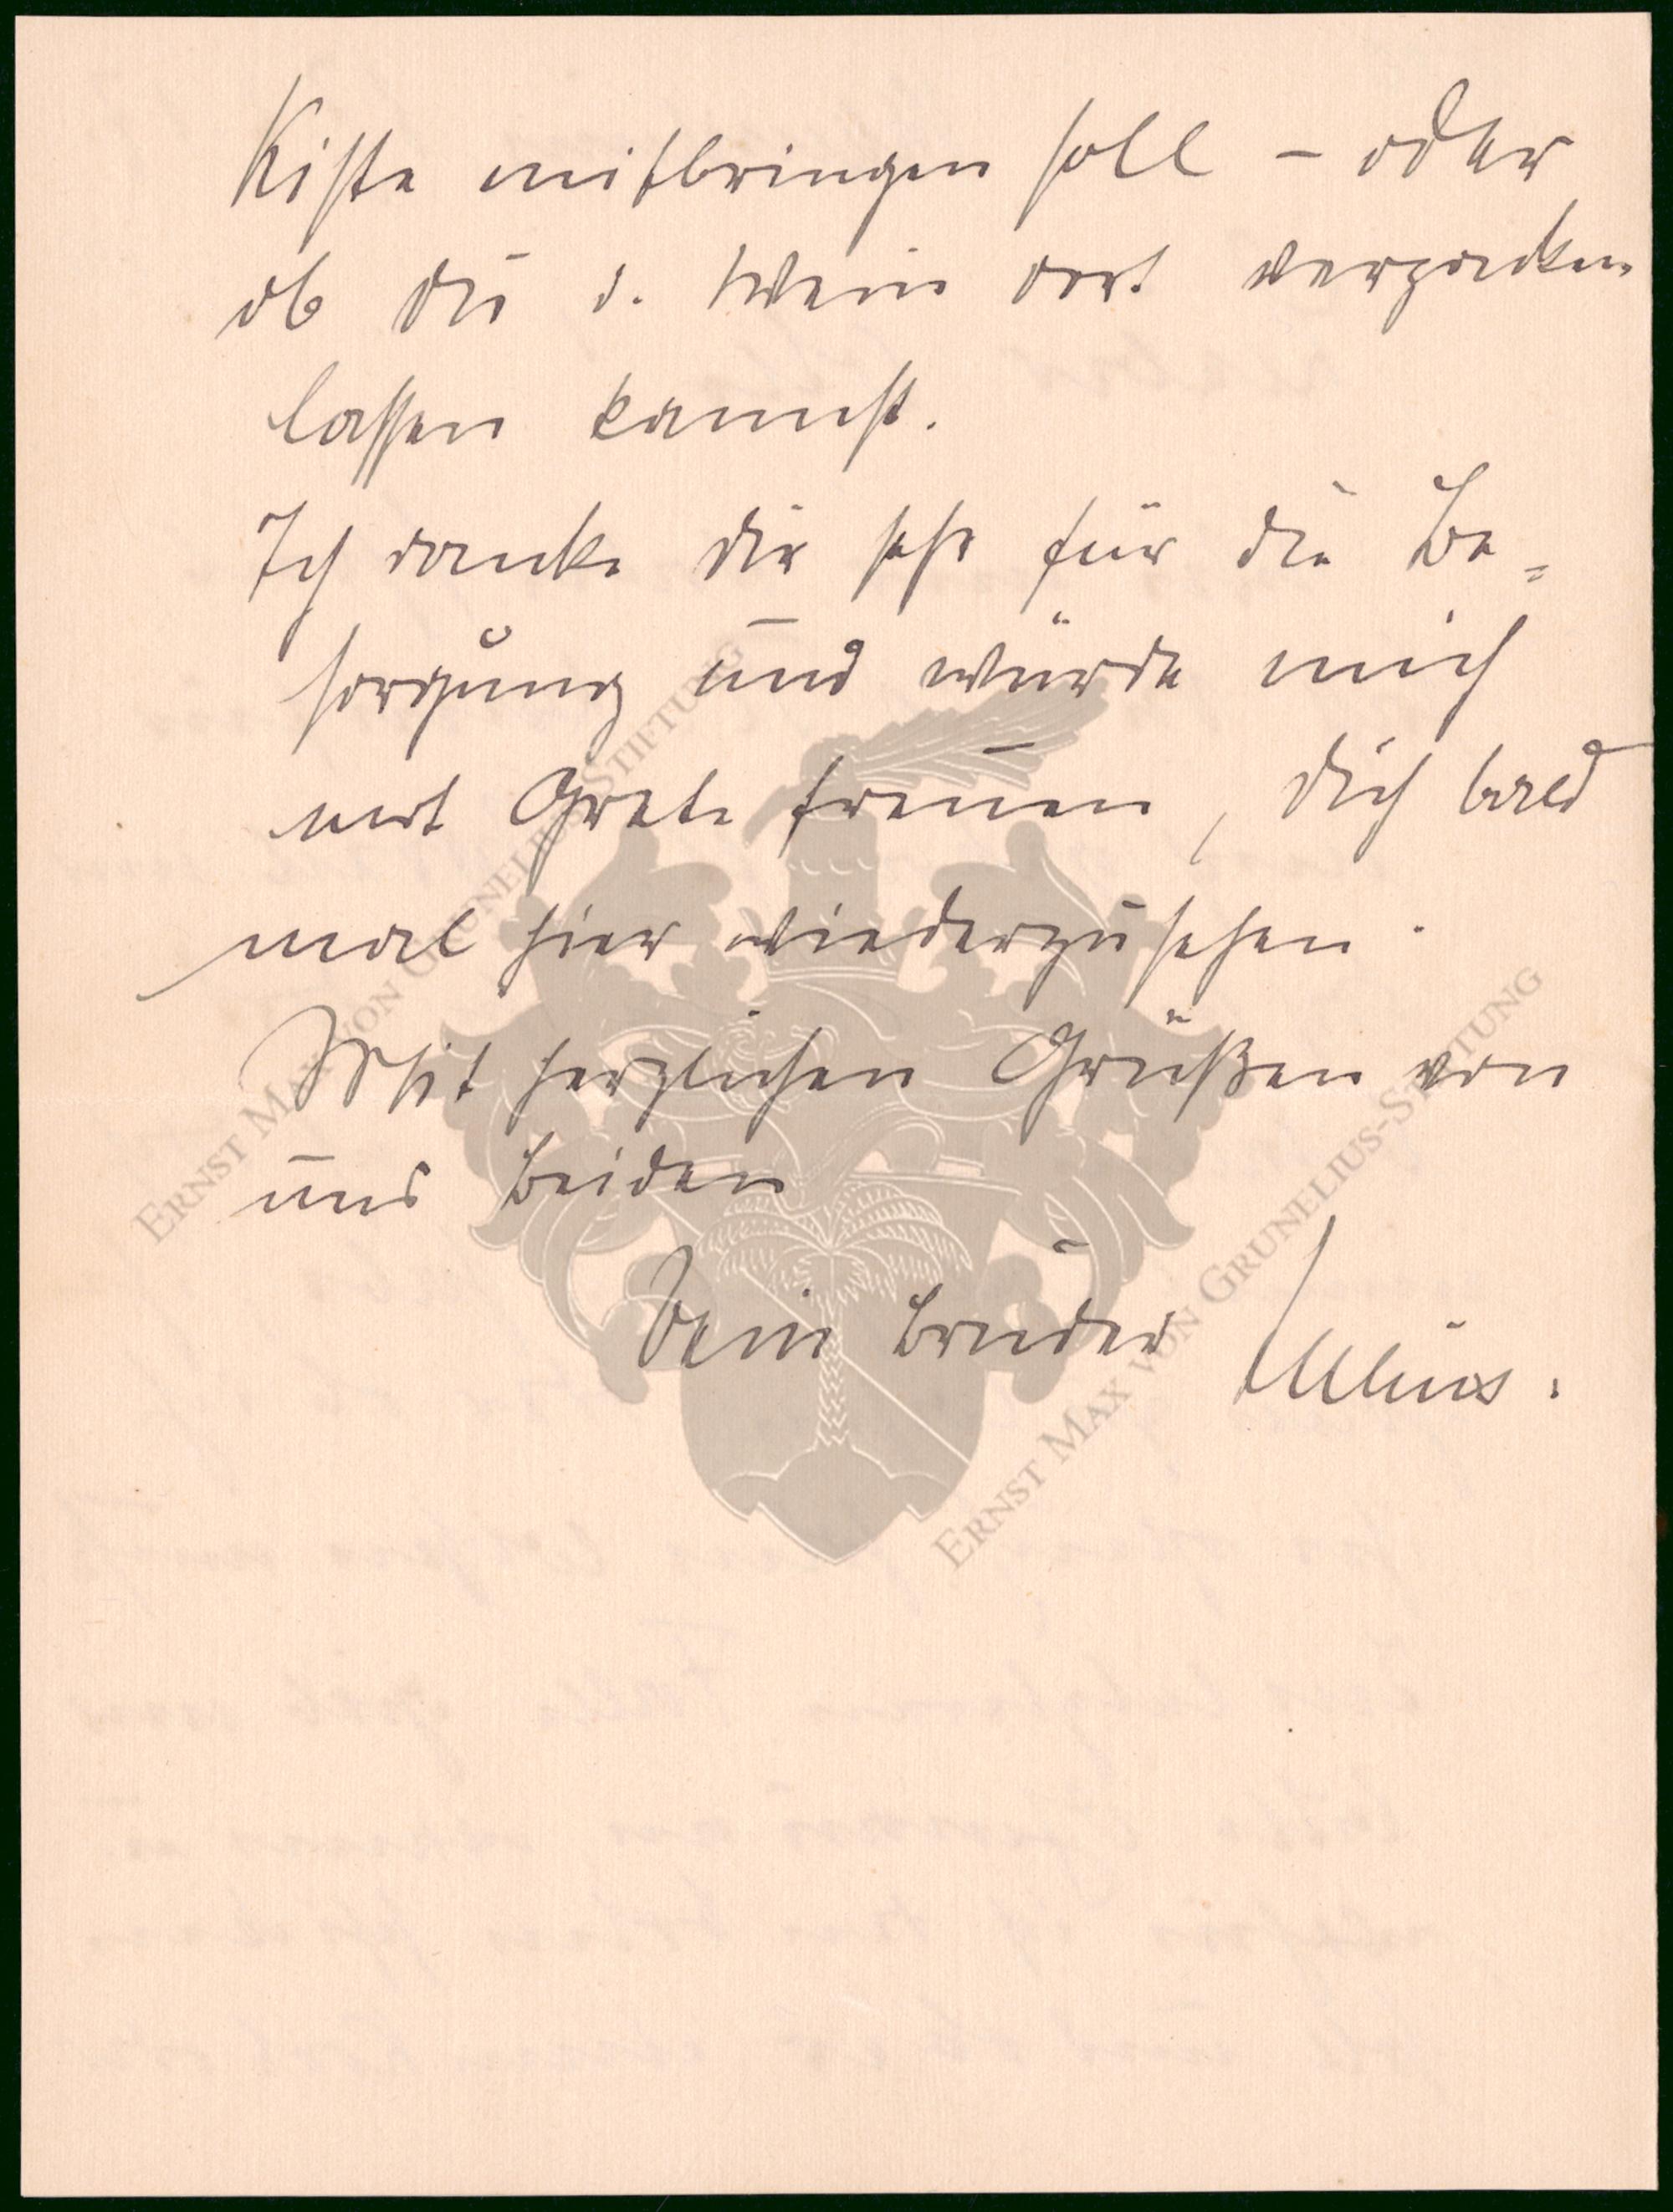 Kiste mitbringen soll – oder
ob du d. Wein dort verpacken
lassen kannst.
Ich danke dir sehr für die Be=
sorgung und würde mich
mit Grete freuen, dich bald
mal hier wiederzusehen.
Mit herzlichen Grüßen von
uns Beiden
Dein Bruder
ERNST MAX VON GRUNELIUS-STIFTUNG
ERNST MAX VON GRUNELIUS-STIFTUNG